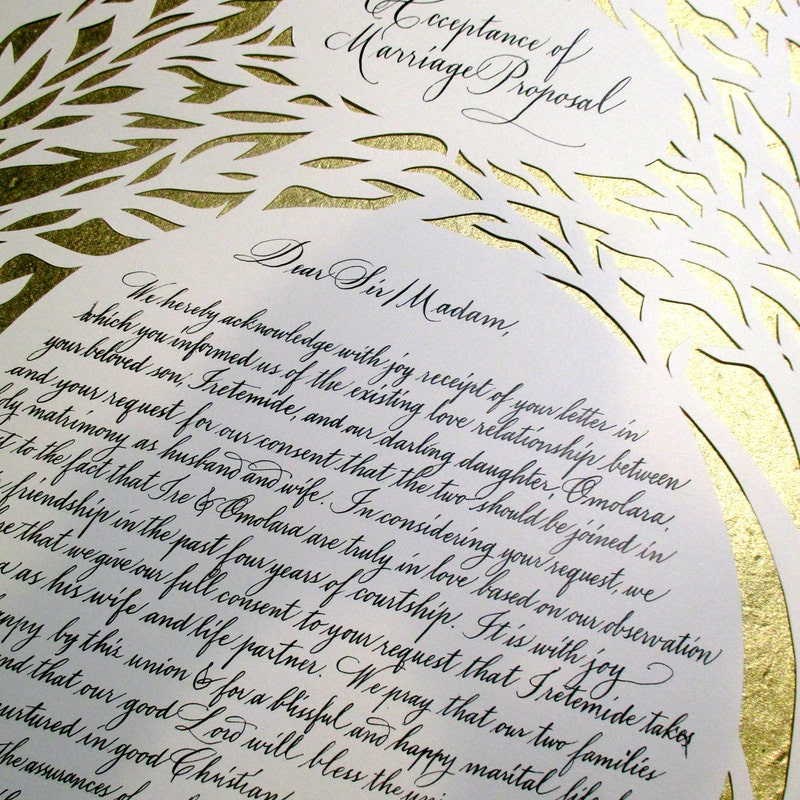 Acceptance of
Marriage Proposal
Dear Sir/Madam,
We hereby acknowledge with joy receipt of your letter in
which you informed us of the existing love relationship between
your beloved son, Iretemide, and our darling daughter, Omolara,
and your request for our consent that the two should be joined in
matrimony as husband and wife. In considering your request, we
to the fact that Ire & Omolara are truly in love based on our observation
friendship in the past four years of courtship. It is with joy
that we give our full consent to your request that Iretemide takes
as his wife and life partner. We pray that our two families
by this union & for a blissful and happy marital
that our good Lord will bless the
in good Christian
the assurances of